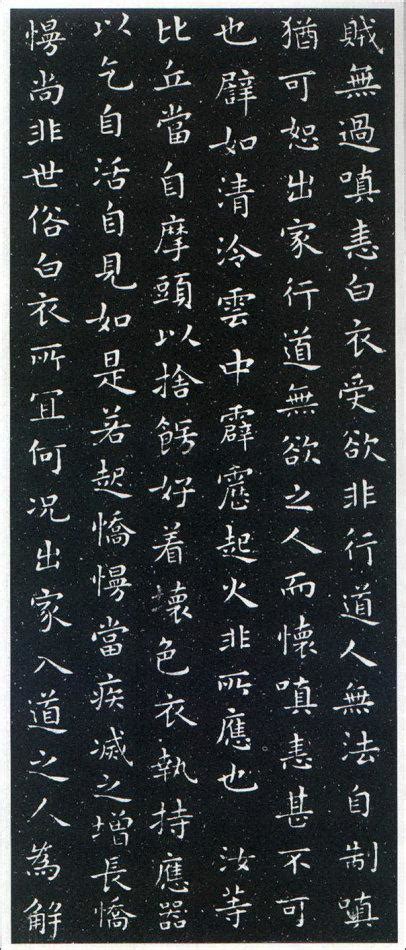 賊無過嗔恚白衣受欲非行道人無法自制嗔
猶可恕出家行道無欲之人而懷嗔恚甚不可
也譬如清泠雲中霹靂起火非所應也 汝等
比丘當自摩頭以捨餝好着壞色衣執持應器
以乞自活自見如是若起憍慢當疾滅之增長憍
慢尚非世俗白衣所冝何况出家入道之人為解